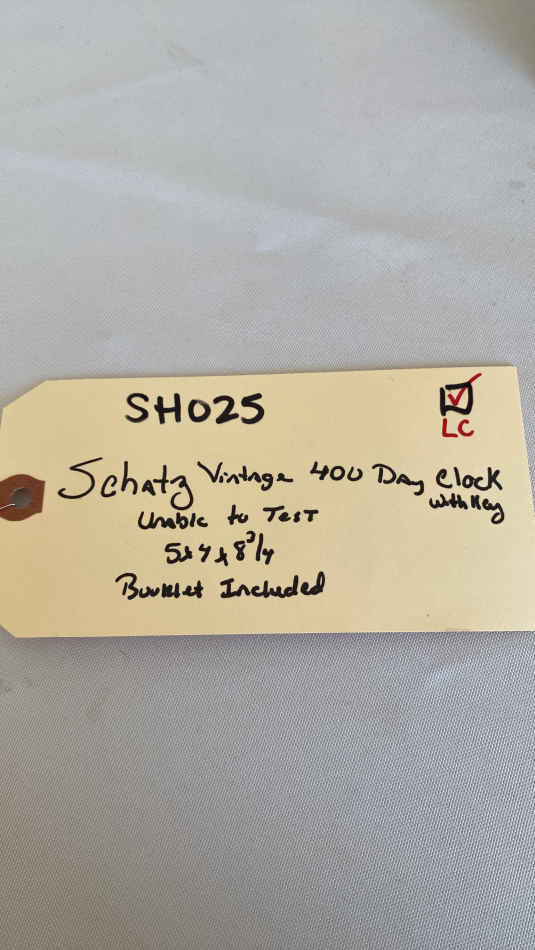 SH025
LC
Schatz Vintage 400 Day Clock
with Key
Unable to Test
5x4x8 3/4
Booklet Included